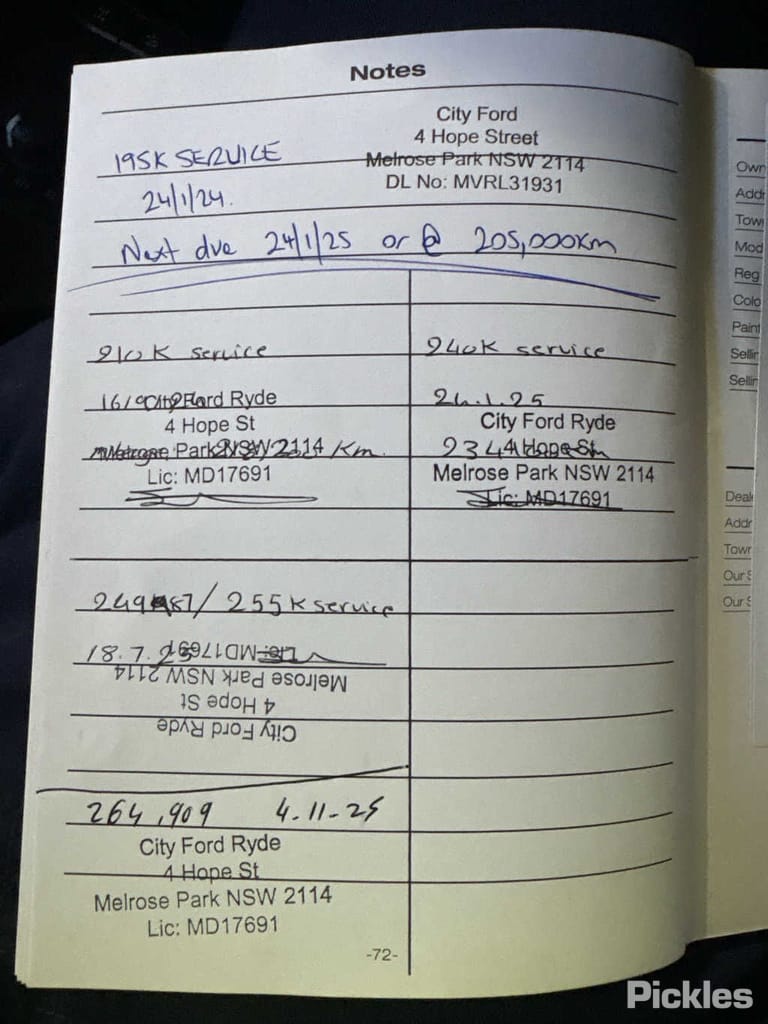 Notes
City Ford
4 Hope Street
Melrose Park NSW 2114
DL No: MVRL31931
195K SERVICE
24/1/24.
Next due 24/1/25 or @ 205,000km
210K service
City Ford Ryde
4 Hope St
Melrose Park NSW 2114
Km
Lic: MD17691
240K service
24.1.25
City Ford Ryde
4 Hope St
Melrose Park NSW 2114
Lic: MD17691
/ 255K service
18.7.25
Lic: MD17691
Melrose Park NSW 2114
4 Hope St
City Ford Ryde
264,909 4-11-25
City Ford Ryde
4 Hope St
Melrose Park NSW 2114
Lic: MD17691
-72-
Own
Addr
Town
Mod
Reg
Colo
Paint
Sellin
Sellin
Deal
Addr
Town
Our S
Our S
Pickles